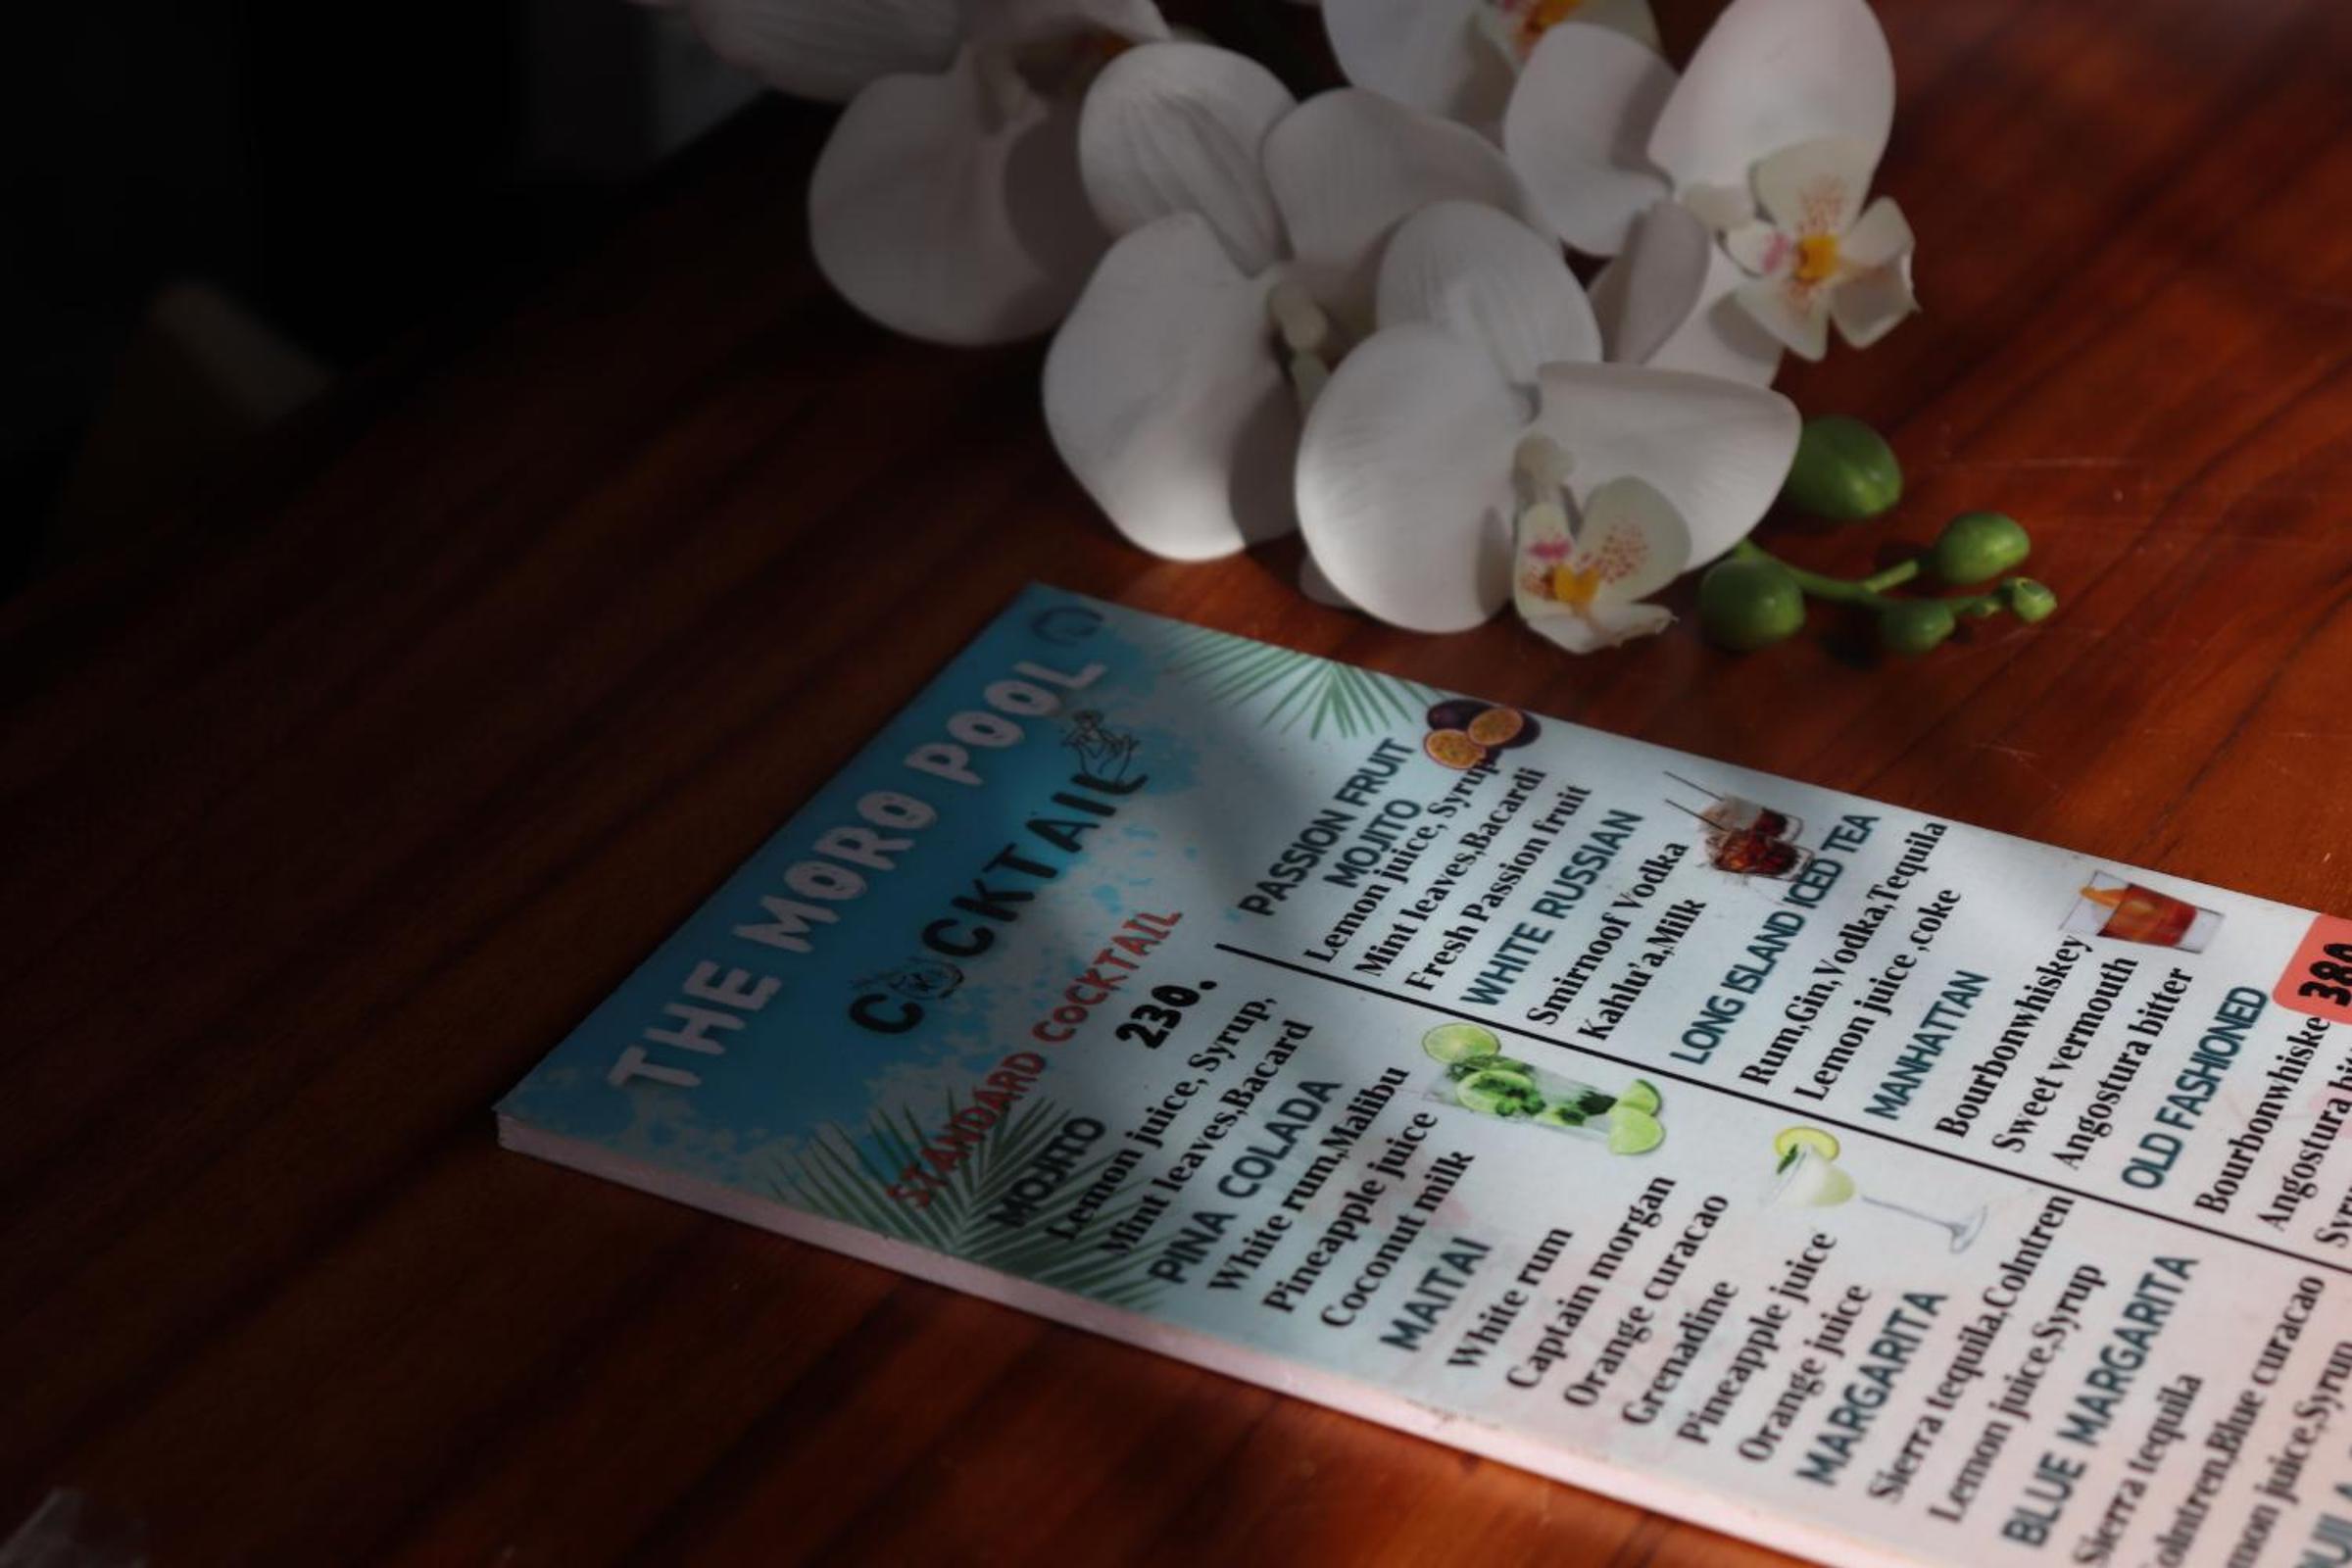 THE MORO POOL
COCKTAIL
STANDARD COCKTAIL
230.
MOJITO
Lemon juice, Syrup,
Mint leaves,Bacard
PINA COLADA
White rum,Malibu
Pineapple juice
Coconut milk
MAITAI
White rum
Captain morgan
Orange curacao
Grenadine
Pineapple juice
Orange juice
MARGARITA
Sierra tequila,Colntren
Lemon juice,Syrup
BLUE MARGARITA
Sierra tequila
olntren,Blue curacao
juice,Syrup
PASSION FRUIT
MOJITO
Lemon juice, Syrup
Mint leaves,Bacardi
Fresh Passion fruit
WHITE RUSSIAN
Smirnoof Vodka
Kahlu'a,Milk
LONG ISLAND ICED TEA
Rum,Gin,Vodka,Tequila
Lemon juice ,coke
MANHATTAN
Bourbonwhiskey
Sweet vermouth
Angostura bitter
OLD FASHIONED
380
Bourbonwhiske
Angostura